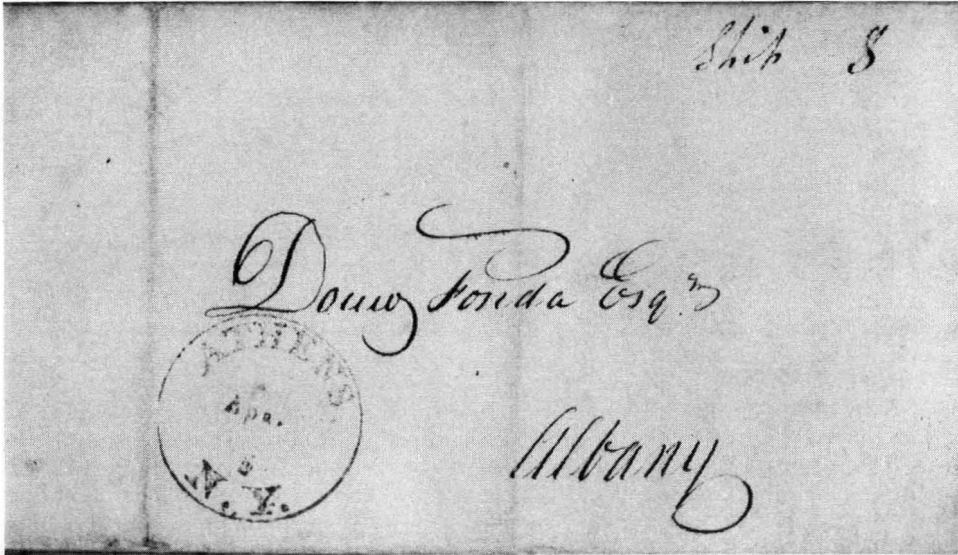 Ship 8
Douw Fonda Esqr.
ATHENS
Apr.
5
N.Y.
Albany